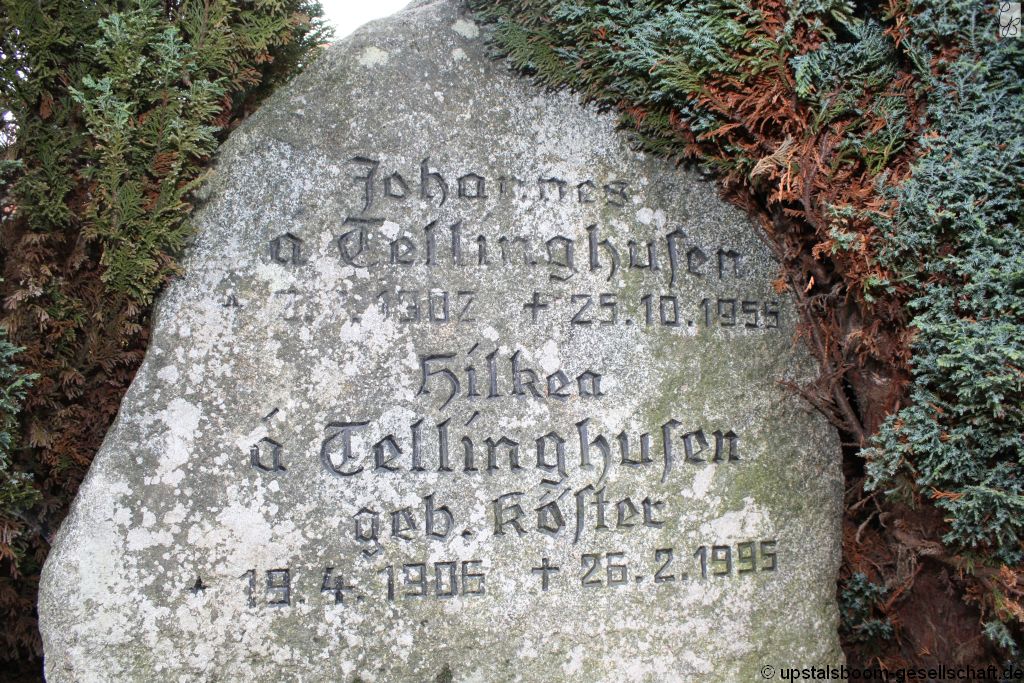 Johannes
a Tellinghusen
* 1902 + 25.10.1955
Hilkea
á Tellinghusen
geb. Köster
* 19.4.1906 + 26.2.1995
© upstalsboom-gesellschaft.de